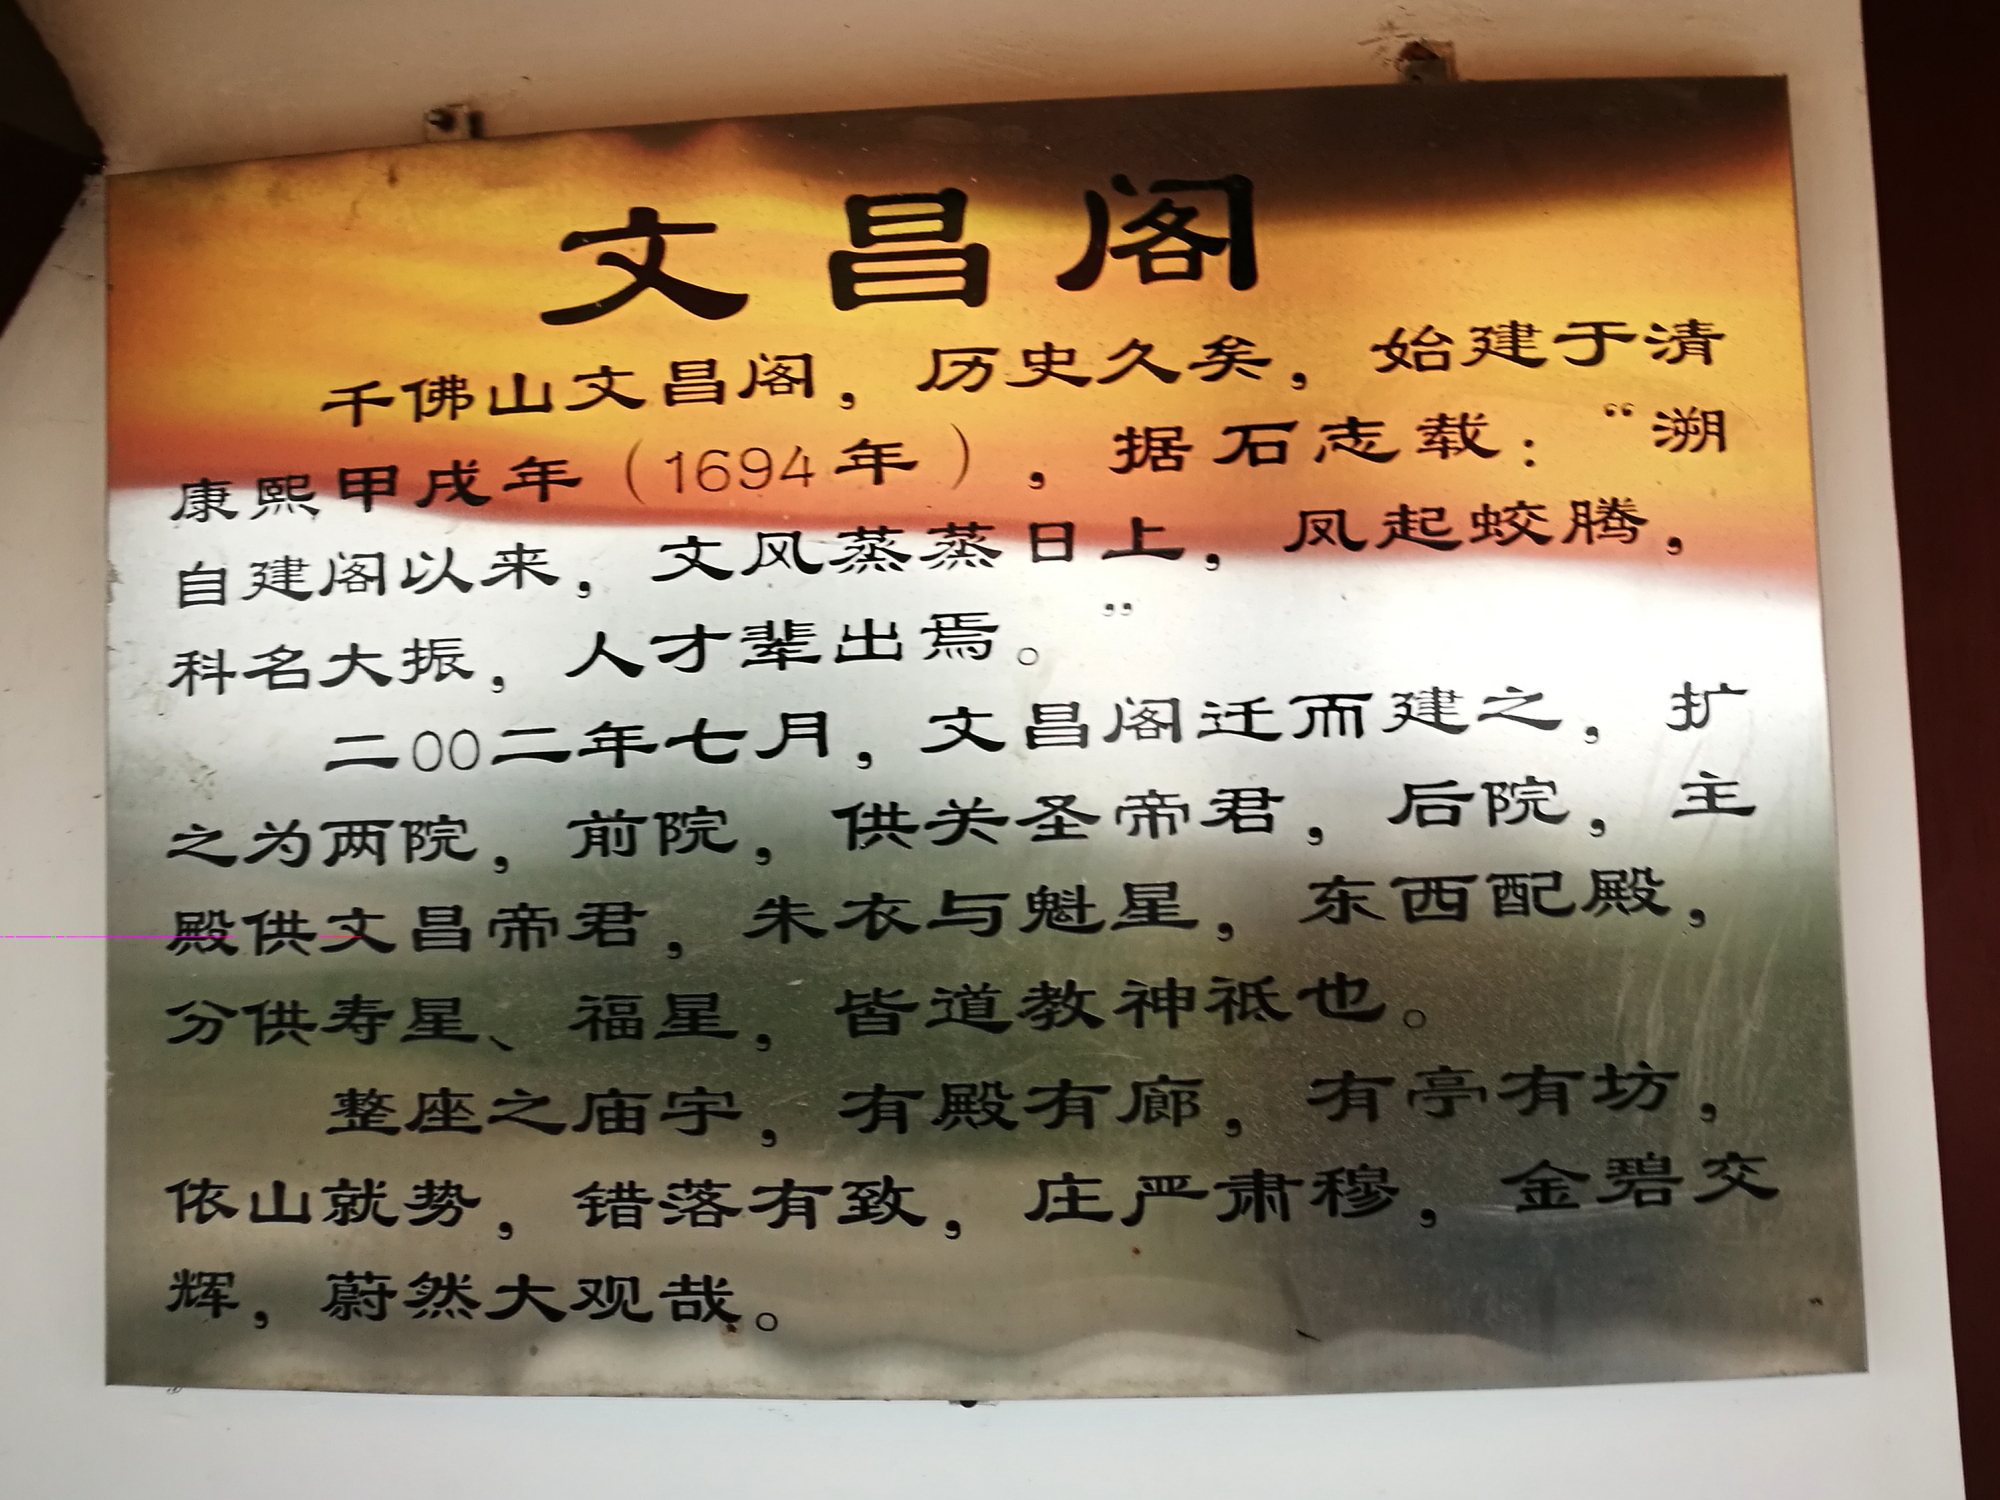 文昌阁
千佛山文昌阁，历史久矣，始建于清
康熙甲戌年（1694年），据石志载：“溯
自建阁以来，文风蒸蒸日上，凤起蛟腾，
科名大振，人才辈出焉。”
二00二年七月，文昌阁迁而建之，扩
之为两院，前院，供关圣帝君，后院，主
殿供文昌帝君，朱衣与魁星，东西配殿，
分供寿星、福星，皆道教神祗也。
整座之庙宇，有殿有廊，有亭有坊，
依山就势，错落有致，庄严肃穆，金碧交
辉，蔚然大观哉。